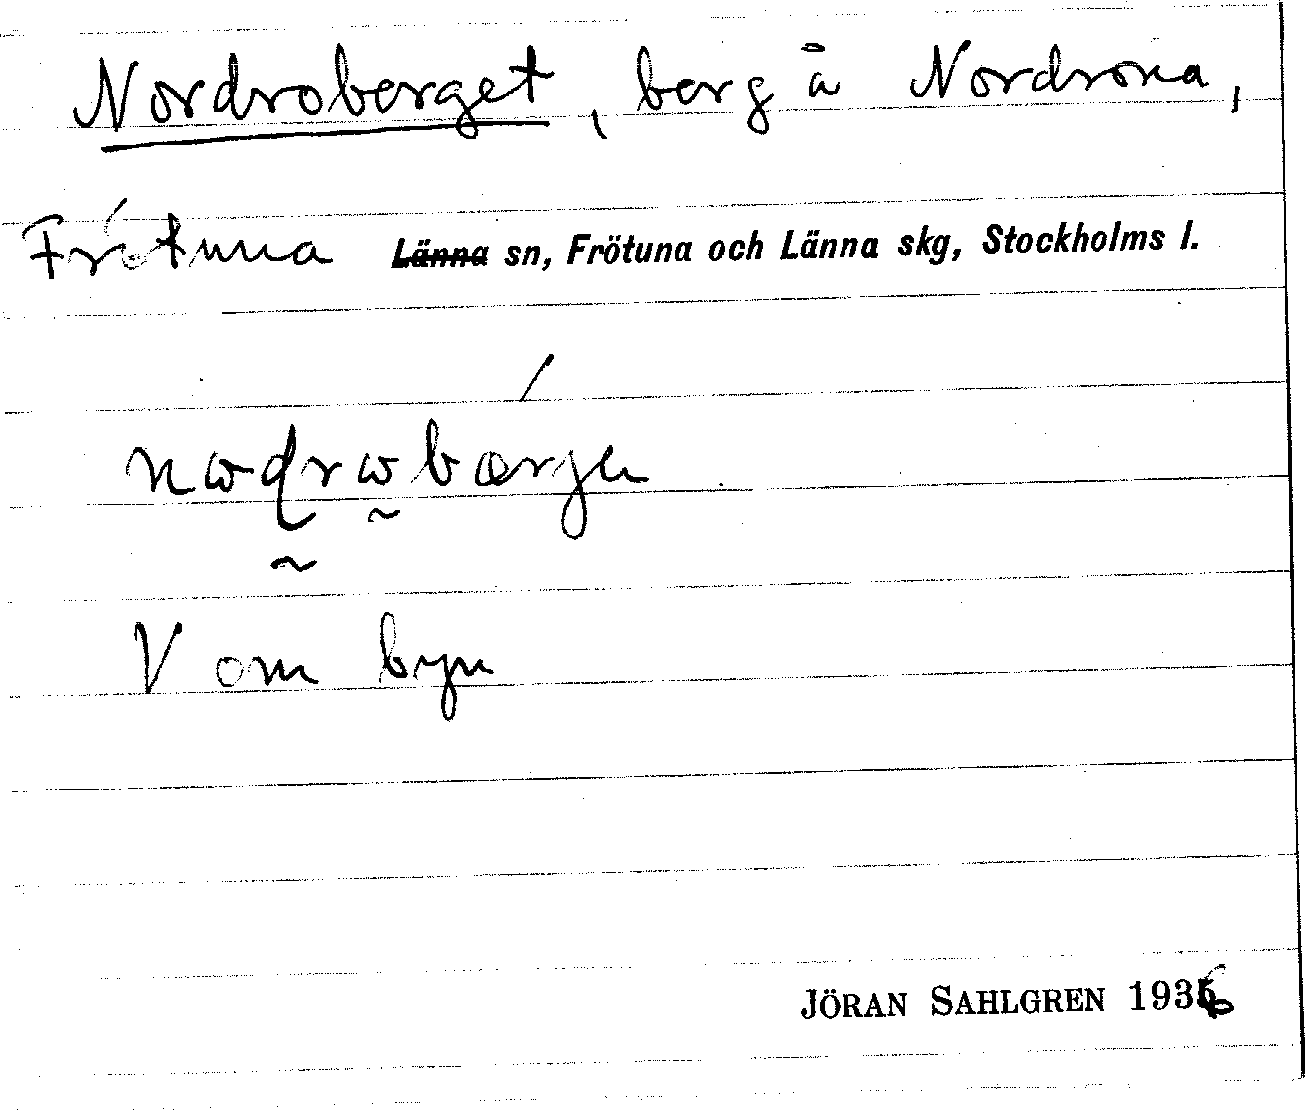 Nordroberget, berg å Nordrona,
Frötuna Länna sn, Frötuna och Länna skg, Stockholms l.
V om byn
JÖRAN SAHLGREN 1936